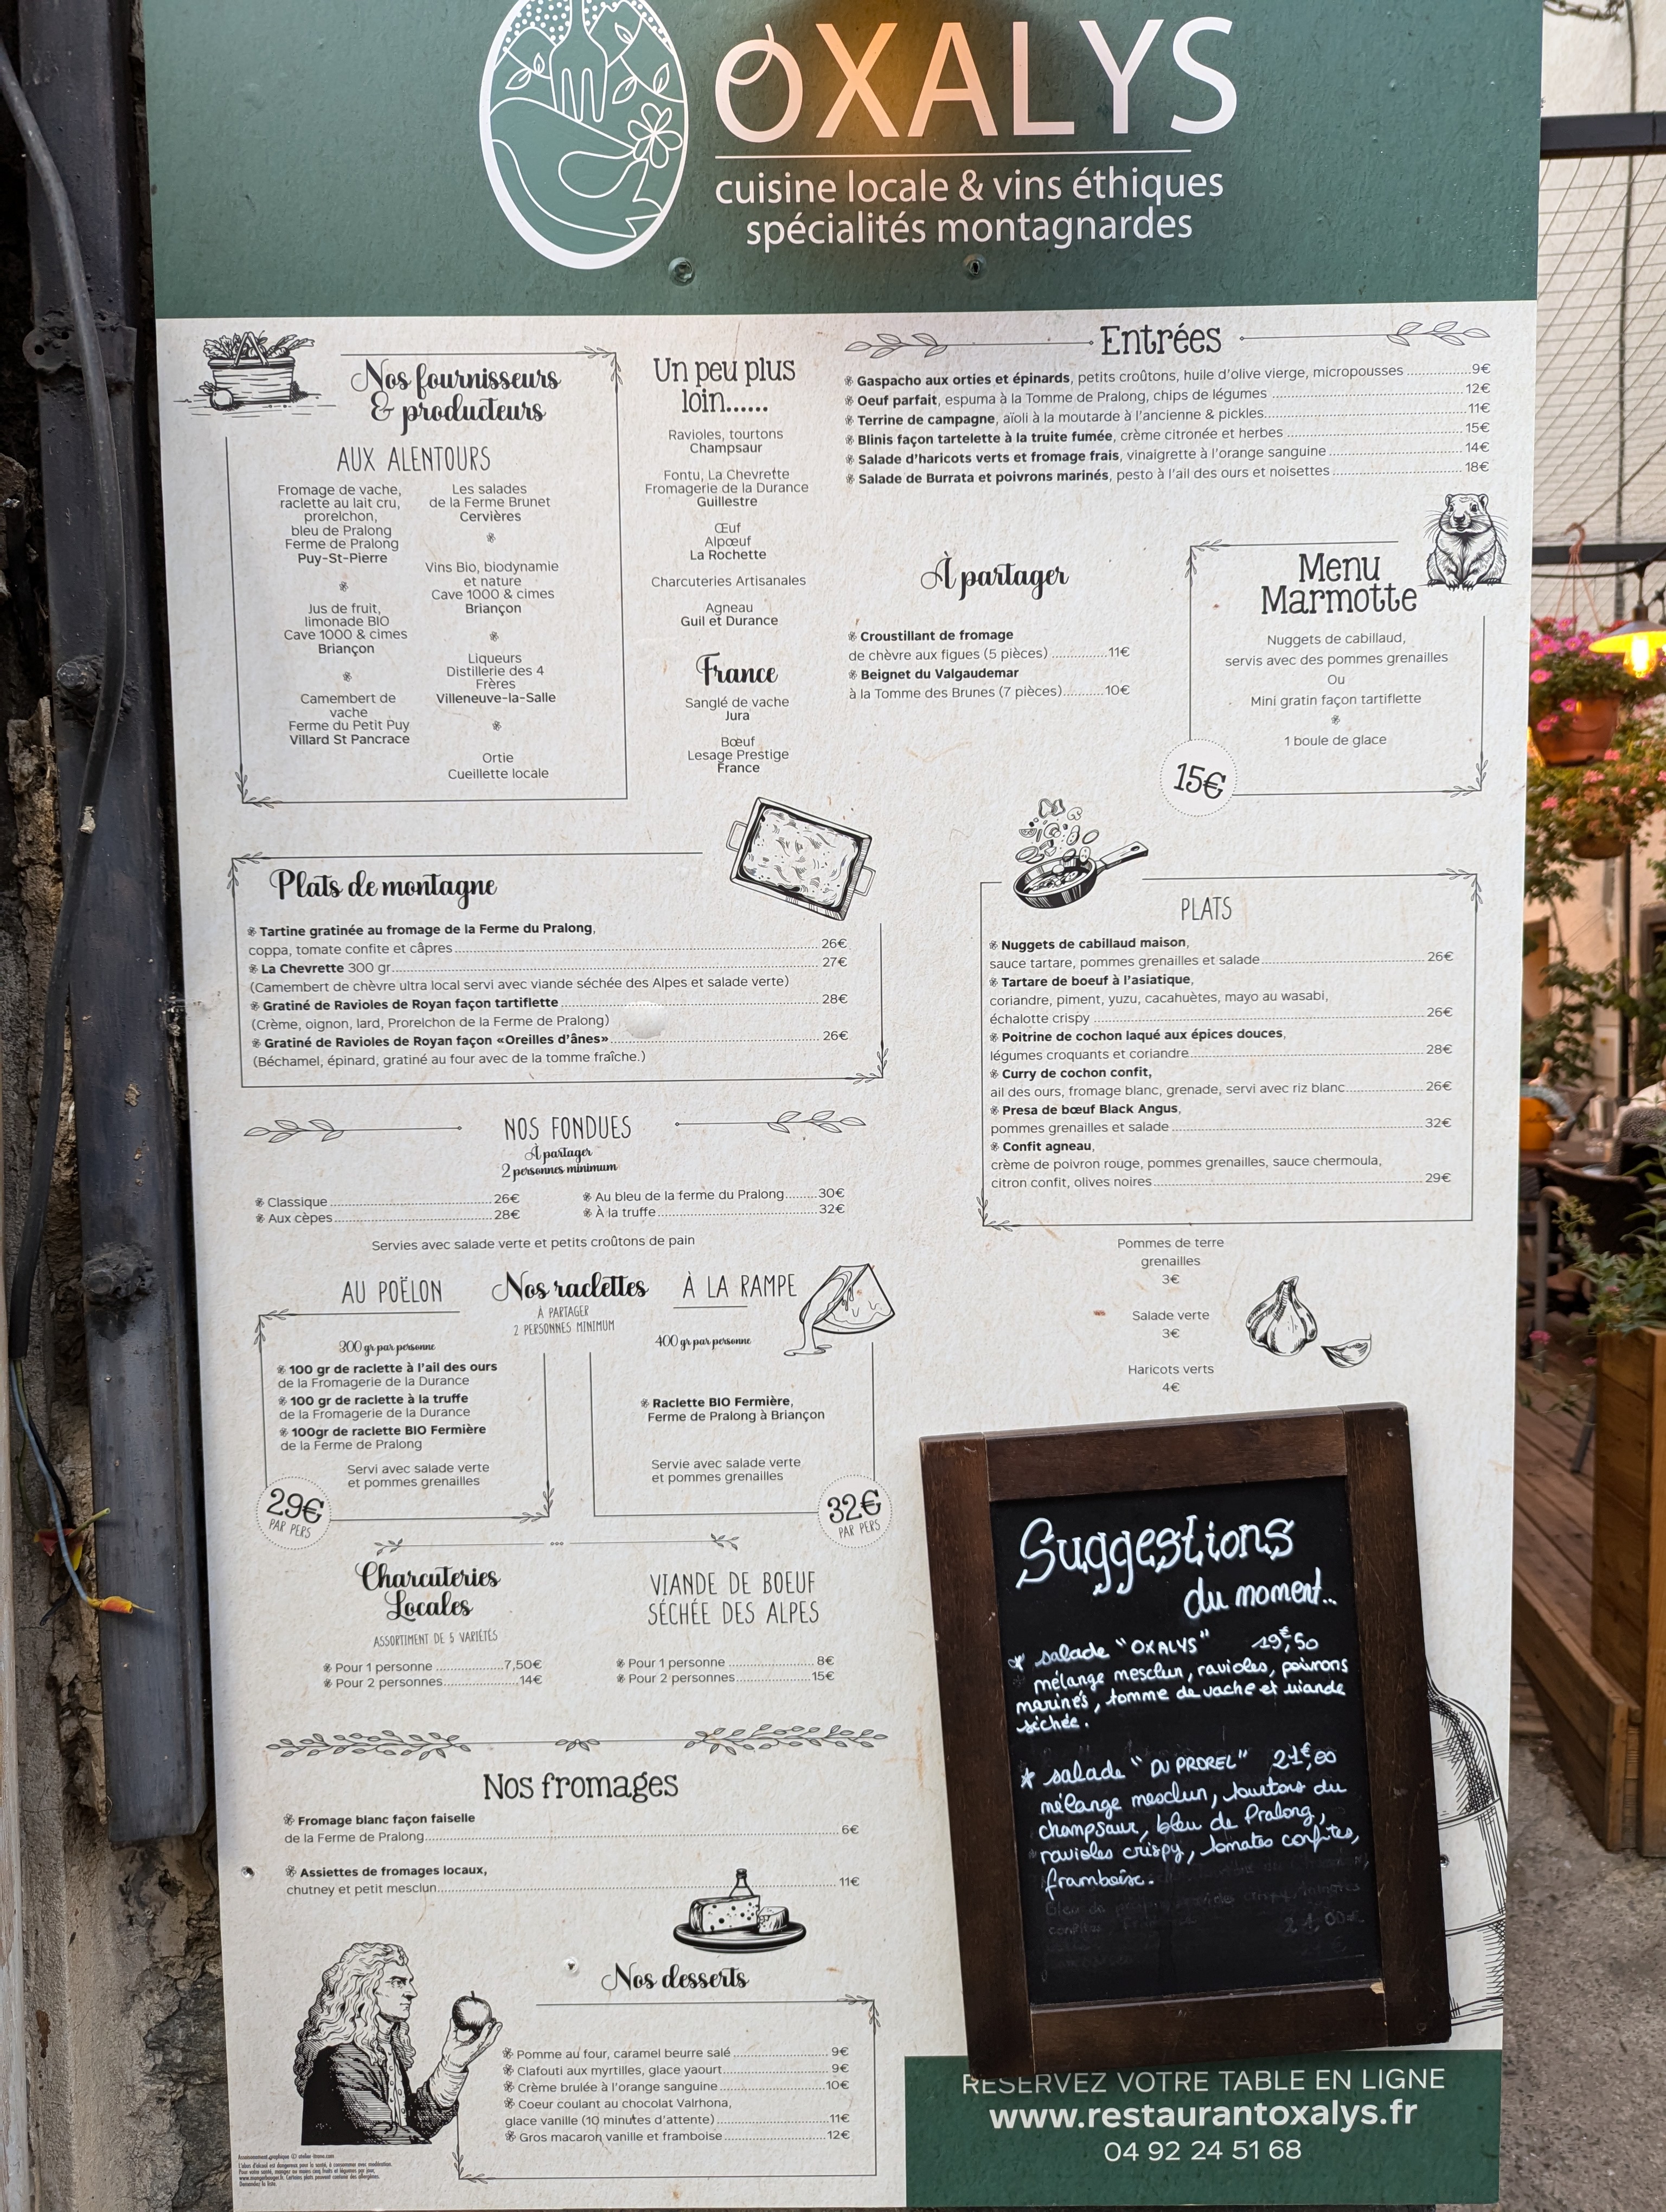 OXALYS
cuisine locale & vins éthiques
spécialités montagnardes
Nos fournisseurs
& producteurs
AUX ALENTOURS
Fromage de vache,
raclette au lait cru,
prorelchon,
bleu de Pralong
Ferme de Pralong
Puy-St-Pierre
Jus de fruit,
limonade BIO
Cave 1000 & cimes
Briançon
Camembert de
vache
Ferme du Petit Puy
Villard St Pancrace
Les salades
de la Ferme Brunet
Cervières
Vins Bio, biodynamie
et nature
Cave 1000 & cimes
Briançon
Liqueurs
Distillerie des 4
Frères
Villeneuve-la-Salle
Ortie
Cueillette locale
Un peu plus
loin......
Ravioles, tourtons
Champsaur
Fontu, La Chevrette
Fromagerie de la Durance
Guillestre
Œuf
Alpœuf
La Rochette
Charcuteries Artisanales
Agneau
Guil et Durance
France
Sanglé de vache
Jura
Bœuf
Lesage Prestige
France
Entrées
Gaspacho aux orties et épinards, petits croûtons, huile d'olive vierge, micropousses 9€
Oeuf parfait, espuma à la Tomme de Pralong, chips de légumes 12€
Terrine de campagne, aïoli à la moutarde à l'ancienne & pickles 11€
Blinis façon tartelette à la truite fumée, crème citronée et herbes 15€
Salade d'haricots verts et fromage frais, vinaigrette à l'orange sanguine 14€
Salade de Burrata et poivrons marinés, pesto à l'ail des ours et noisettes 18€
À partager
Croustillant de fromage
de chèvre aux figues (5 pièces) 11€
Beignet du Valgaudemar
à la Tomme des Brunes (7 pièces) 10€
Menu
Marmotte
Nuggets de cabillaud,
servis avec des pommes grenailles
Ou
Mini gratin façon tartiflette
1 boule de glace
15€
Plats de montagne
Tartine gratinée au fromage de la Ferme du Pralong,
coppa, tomate confite et câpres 26€
La Chevrette 300 gr 27€
(Camembert de chèvre ultra local servi avec viande séchée des Alpes et salade verte)
Gratiné de Ravioles de Royan façon tartiflette 28€
(Crème, oignon, lard, Prorelchon de la Ferme de Pralong)
Gratiné de Ravioles de Royan façon «Oreilles d'ânes» 26€
(Béchamel, épinard, gratiné au four avec de la tomme fraîche.)
PLATS
Nuggets de cabillaud maison,
sauce tartare, pommes grenailles et salade 26€
Tartare de boeuf à l'asiatique,
coriandre, piment, yuzu, cacahuètes, mayo au wasabi,
échalotte crispy 26€
Poitrine de cochon laqué aux épices douces,
légumes croquants et coriandre 28€
Curry de cochon confit,
ail des ours, fromage blanc, grenade, servi avec riz blanc 26€
Presa de bœuf Black Angus,
pommes grenailles et salade 32€
Confit agneau,
crème de poivron rouge, pommes grenailles, sauce chermoula,
citron confit, olives noires 29€
Pommes de terre
grenailles
3€
Salade verte
3€
Haricots verts
4€
NOS FONDUES
À partager
2 personnes minimum
Classique 26€
Aux cèpes 28€
Au bleu de la ferme du Pralong 30€
À la truffe 32€
Servies avec salade verte et petits croûtons de pain
Nos raclettes
À PARTAGER
2 PERSONNES MINIMUM
AU POËLON
300 gr par personne
100 gr de raclette à l'ail des ours
de la Fromagerie de la Durance
100 gr de raclette à la truffe
de la Fromagerie de la Durance
100gr de raclette BIO Fermière
de la Ferme de Pralong
Servi avec salade verte
et pommes grenailles
29€
PAR PERS
À LA RAMPE
400 gr par personne
Raclette BIO Fermière,
Ferme de Pralong à Briançon
Servie avec salade verte
et pommes grenailles
32€
PAR PERS
Charcuteries
Locales
ASSORTIMENT DE 5 VARIÉTÉS
Pour 1 personne 7,50€
Pour 2 personnes 14€
VIANDE DE BOEUF
SÉCHÉE DES ALPES
Pour 1 personne 8€
Pour 2 personnes 15€
Nos fromages
Fromage blanc façon faiselle
de la Ferme de Pralong 6€
Assiettes de fromages locaux,
chutney et petit mesclun 11€
Nos desserts
Pomme au four, caramel beurre salé 9€
Clafouti aux myrtilles, glace yaourt 9€
Crème brulée à l'orange sanguine 10€
Coeur coulant au chocolat Valrhona,
glace vanille (10 minutes d'attente) 11€
Gros macaron vanille et framboise 12€
Suggestions
du moment...
salade "OXALYS" 19€,50
mélange mesclun, ravioles, poivrons
marinés, tomme de vache et viande
séchée.
salade "DU PROREL" 21€,00
mélange mesclun, tourtons du
champsaur, bleu de Pralong,
ravioles crispy, tomates confites,
framboise.
RÉSERVEZ VOTRE TABLE EN LIGNE
www.restaurantoxalys.fr
04 92 24 51 68